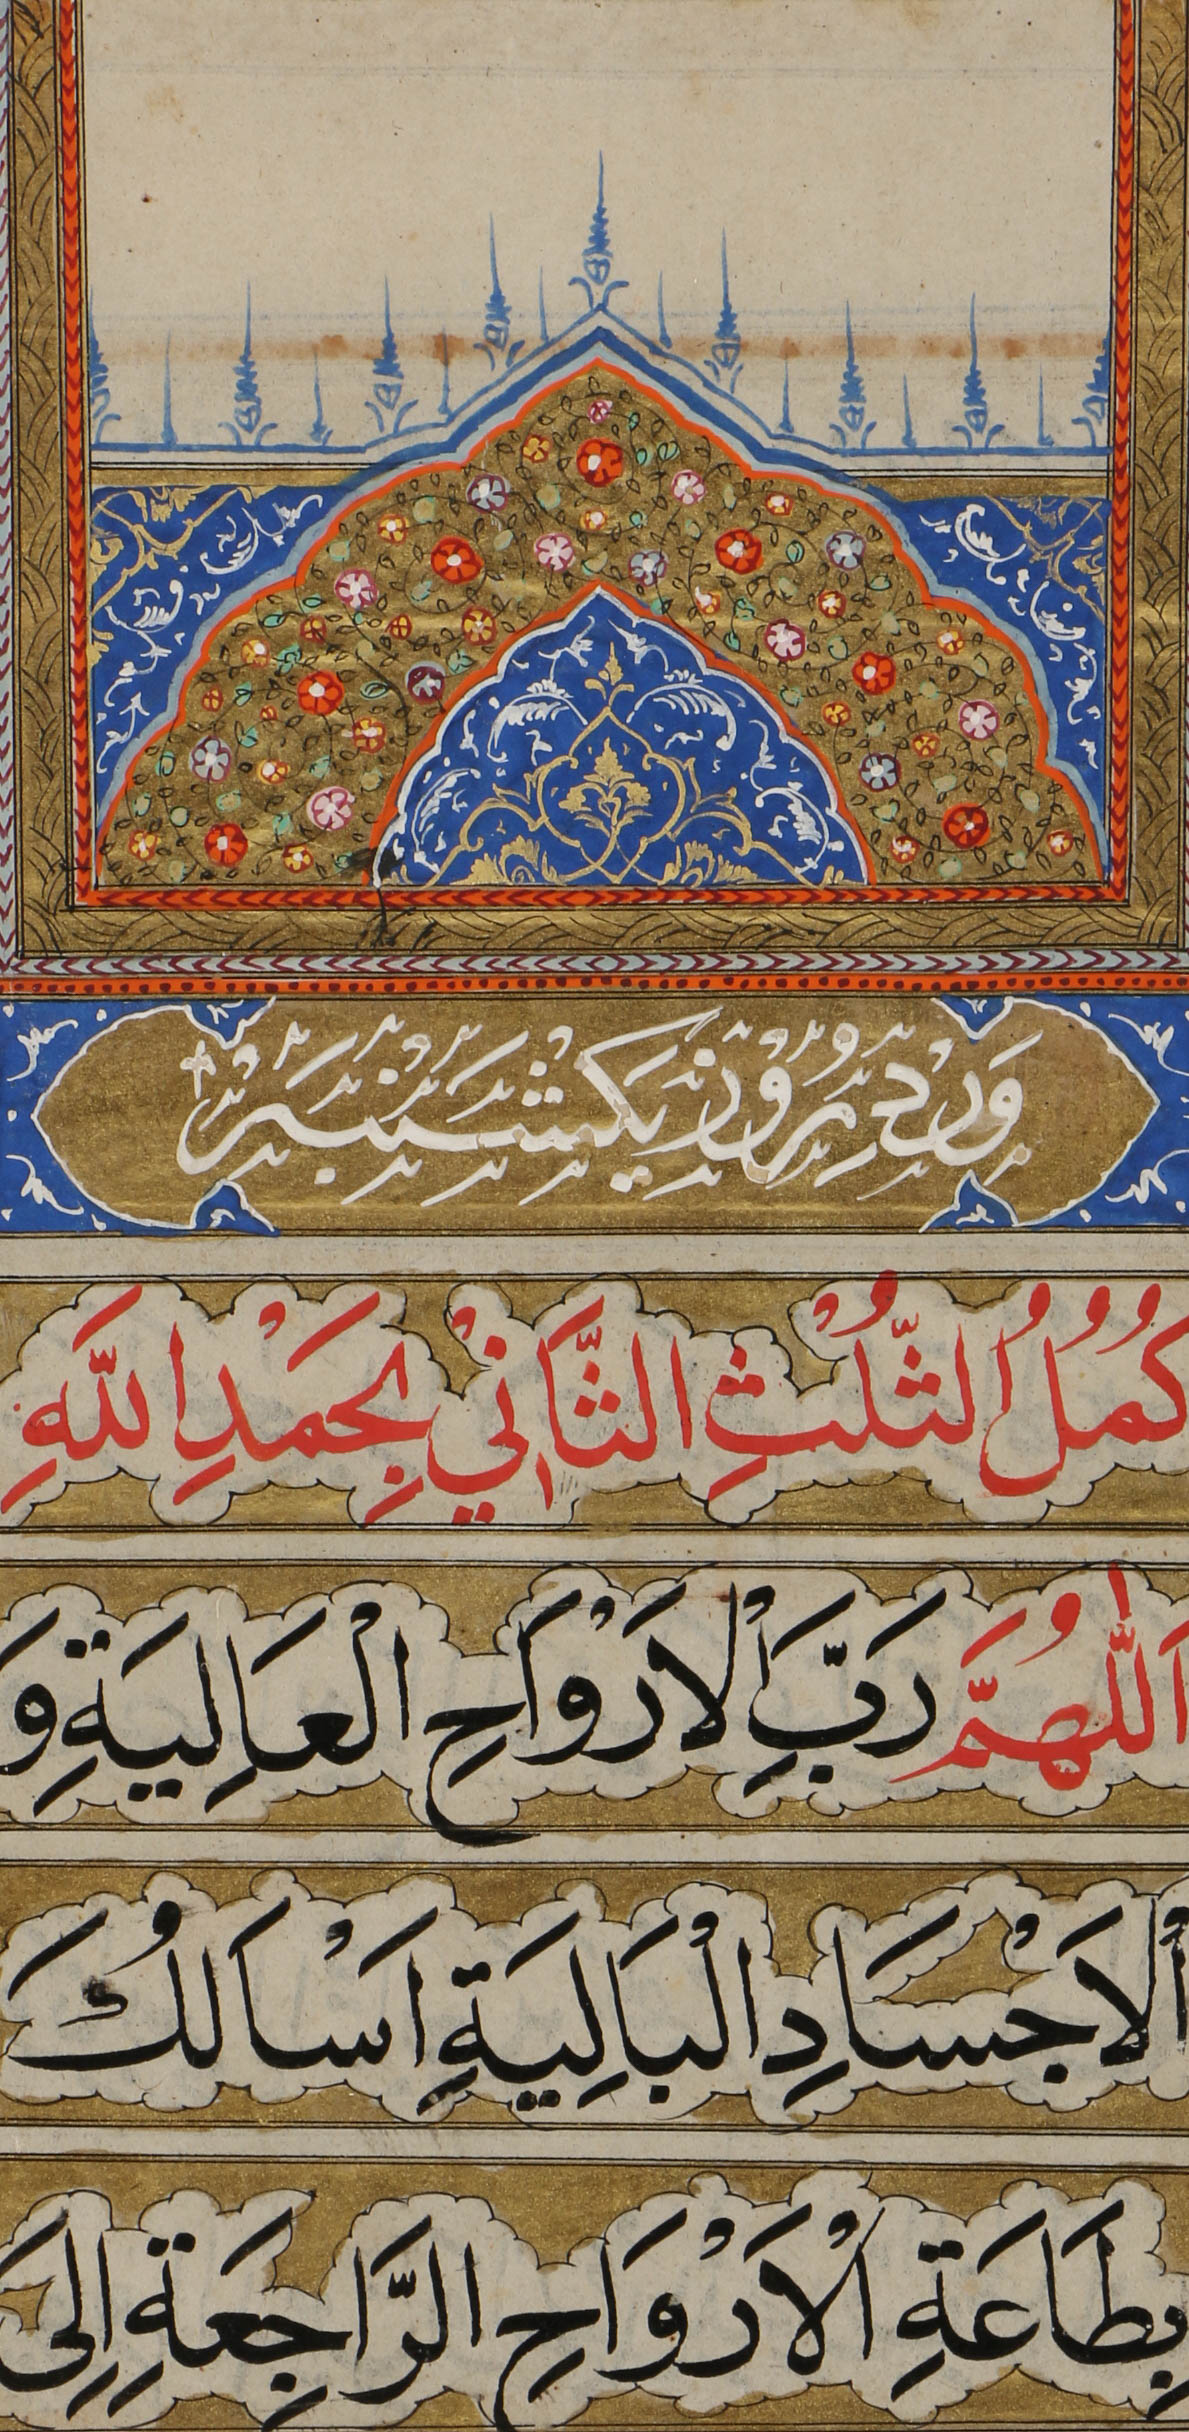 وِرْدِ رُوزِ يَكْشَنْبَه
كَمُلَ الثُّلُثِ الثَّانِي بِحَمْدِ اللّٰهِ
اَللّٰهُمَّ رَبَّ الْاَرْوَاحِ الْعَالِيَةِ وَ
الْاَجْسَادِ الْبَالِيَةِ اَسْاَلُكَ
بِطَاعَةِ الْاَرْوَاحِ الرَّاجِعَةِ اِلٰى